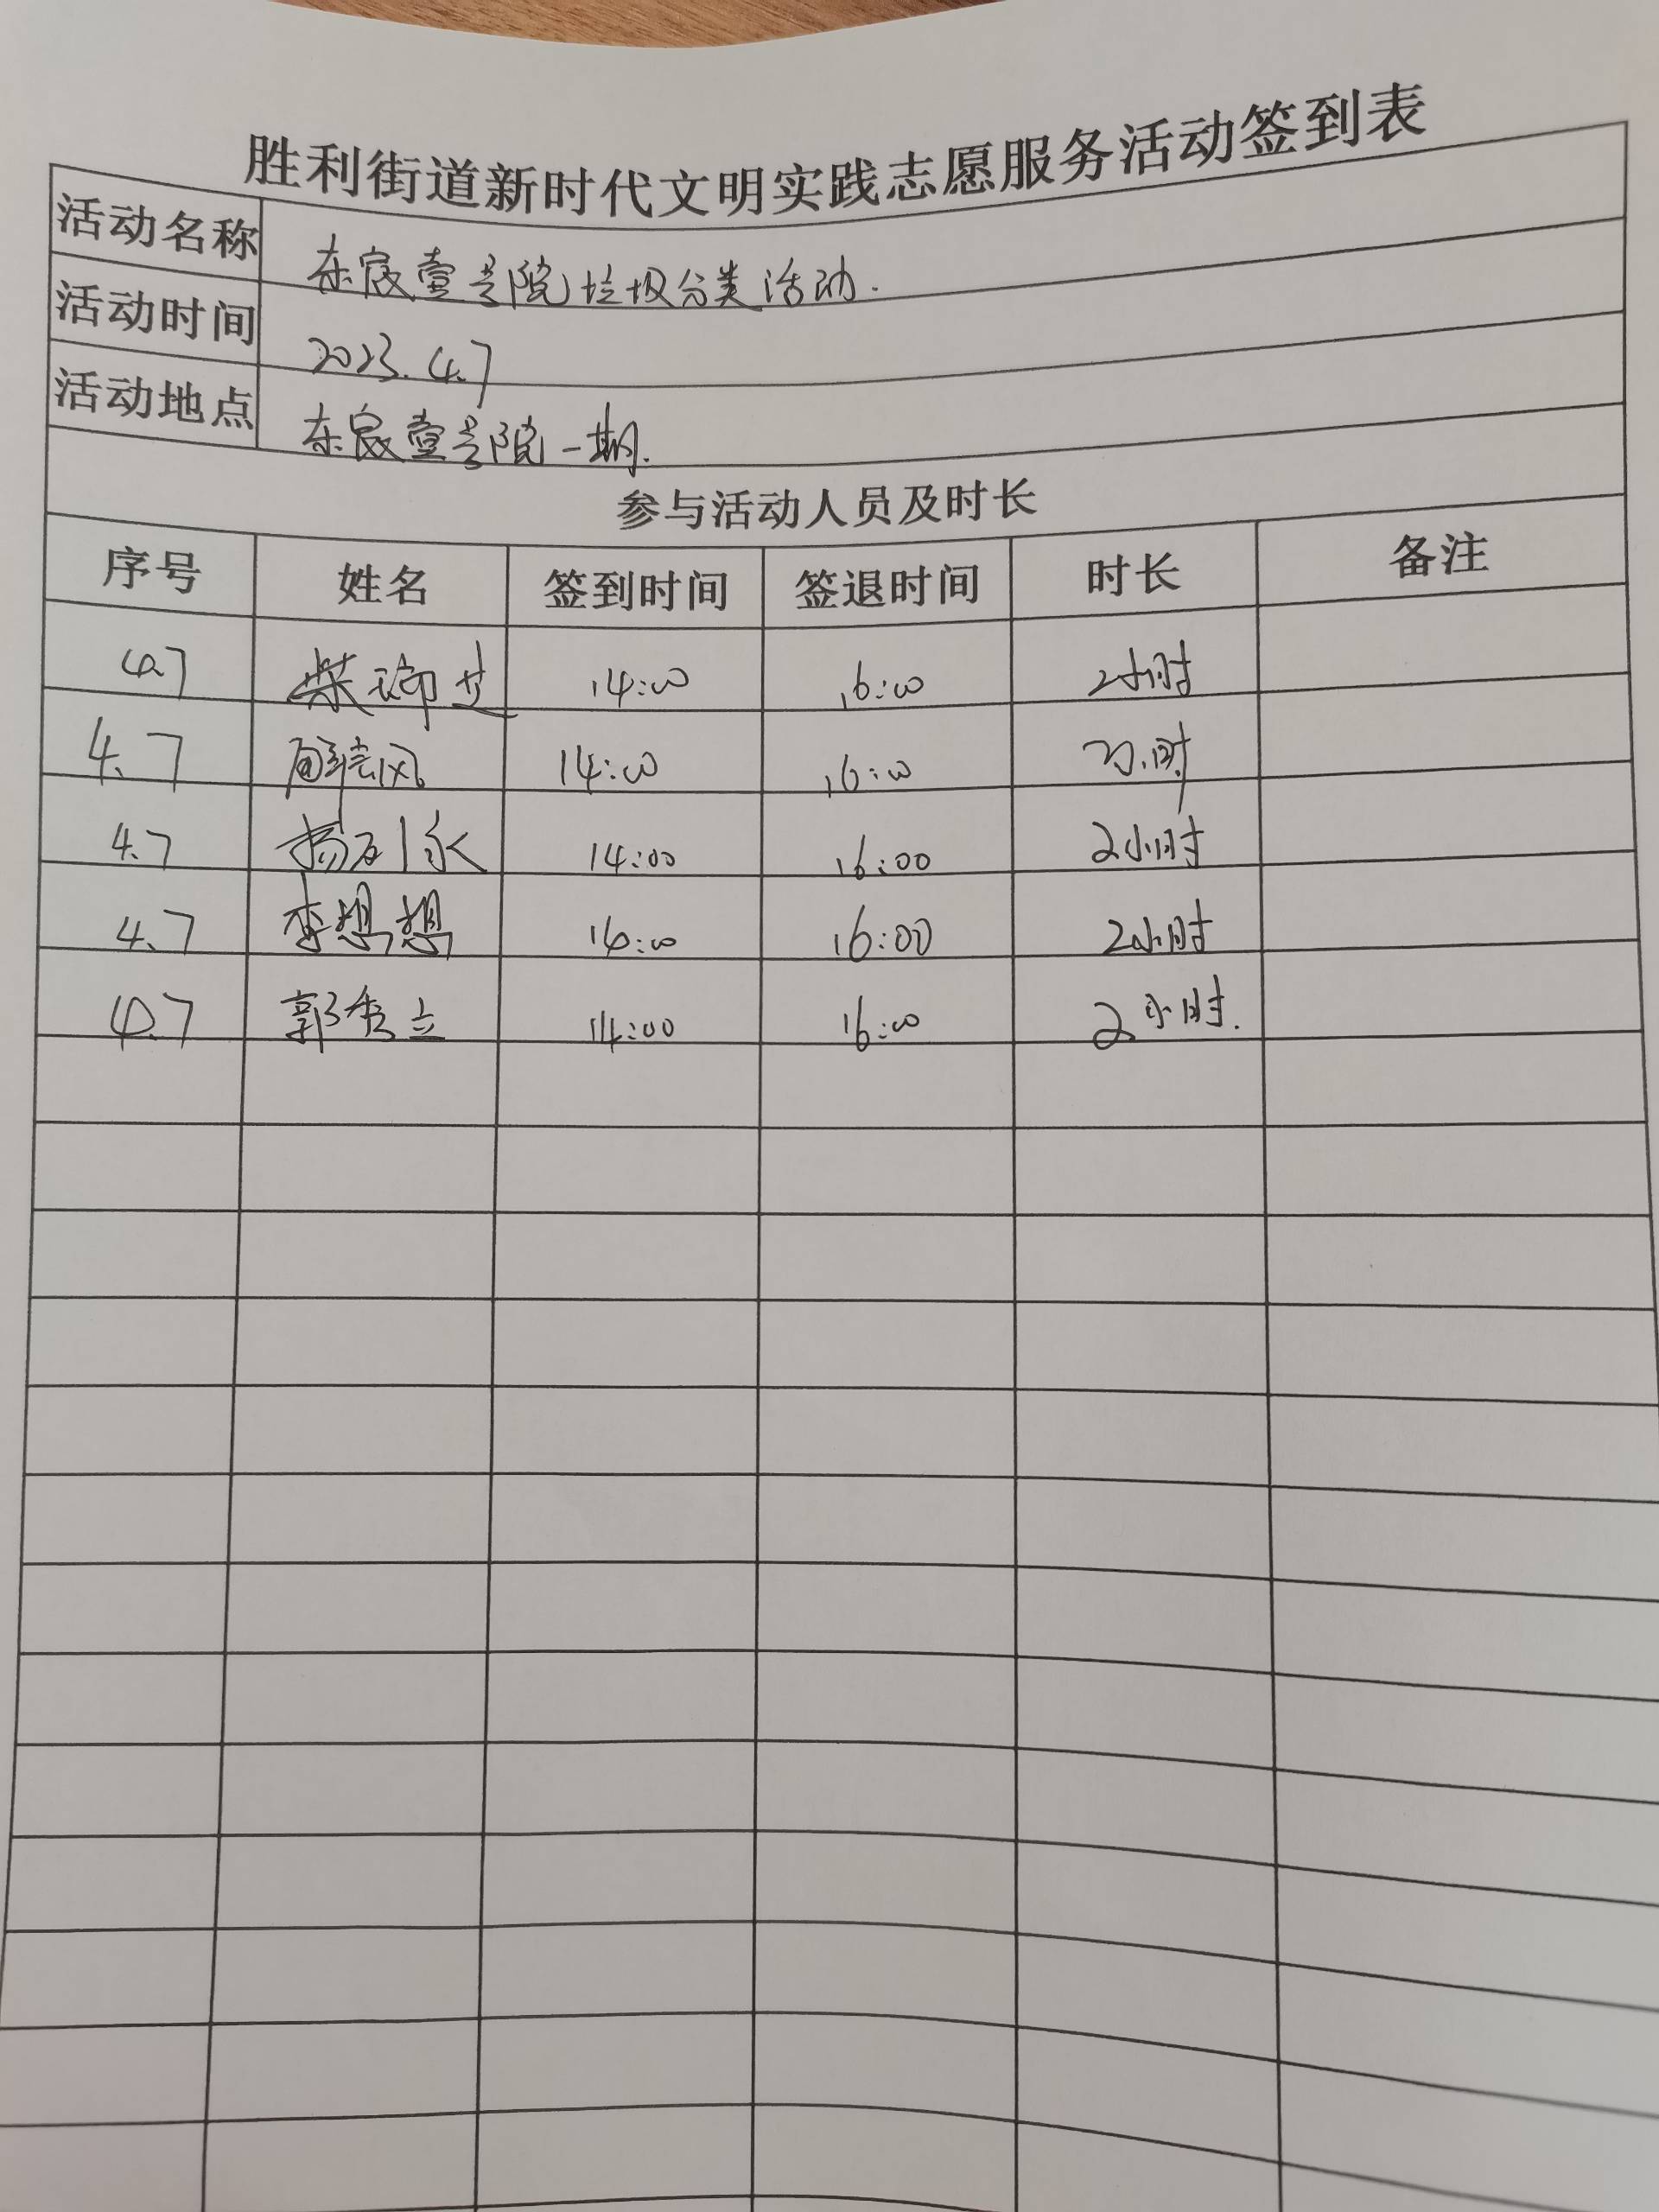 胜利街道新时代文明实践志愿服务活动签到表
活动名称 东宸壹号院垃圾分类活动.
活动时间 2023.4.7
活动地点 东宸壹号院一期.
参与活动人员及时长
序号 姓名 签到时间 签退时间 时长 备注
4.7 柴 14:00 16:00 2小时
4.7 14:00 16:00 2小时
4.7 杨 14:00 16:00 2小时
4.7 李想想 14:00 16:00 2小时
4.7 郭秀立 14:00 16:00 2小时.